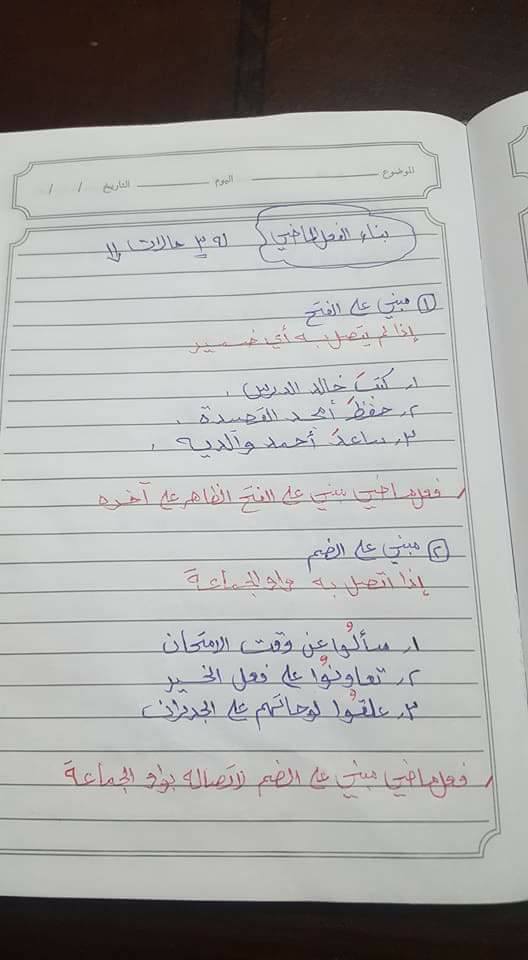 الموضوع اليوم التاريخ / /
بناء الفعل الماضي له ٣ حالات
① مبني على الفتح
إذا لم يتصل به أي ضمير
١. كتبَ خالد الدرس.
٢. حفظَ أمجد القصيدة.
٣. ساعدَ أحمد والديه.
فعل ماضي مبني على الفتح الظاهر على آخره
② مبني على الضم
إذا اتصل به واو الجماعة
١. سألُوا عن وقت الامتحان
٢. تعاونُوا على فعل الخير
٣. علقُوا لوحاتهم على الجدران
فعل ماضي مبني على الضم لاتصاله بواو الجماعة